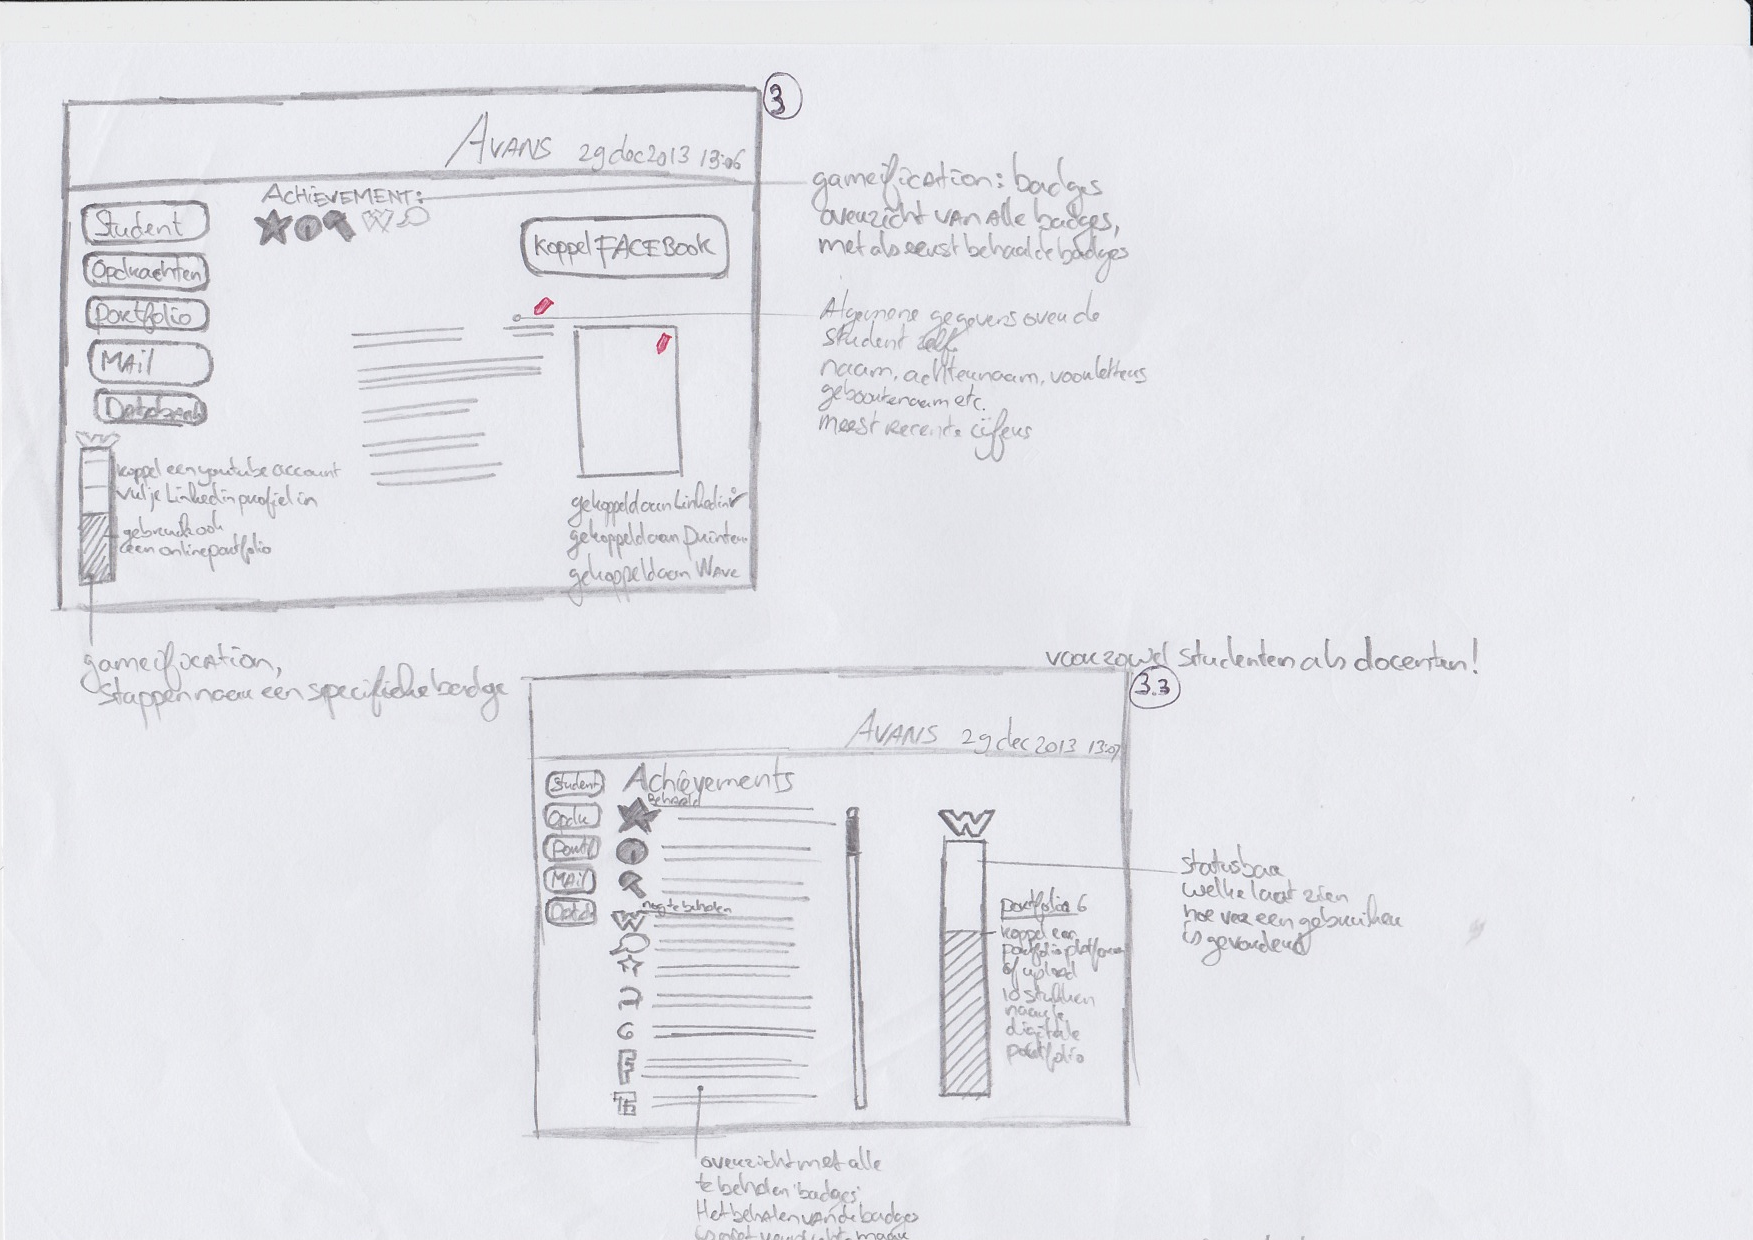 3
AVANS 29 dec 2013 13:06
ACHIEVEMENT:
Student
Opdrachten
Portfolio
MAil
Databank
koppel FACEBook
koppel een youtube account
vul je Linkedin profiel in
gebruik ook
een online portfolio
gekoppeld aan Linkedin
gekoppeld aan
gekoppeld aan WAve
gameification: badges
overzicht VAN Alle badges,
met als eerst behaalde badges
Algemene gegevens over de
student zelf
naam, achternaam, voorletters
geboortenaam etc.
meest recente cijfers
gameification,
stappen naar een specifieke badge
voor zowel studenten als docenten!
3.3
AVANS 29 dec 2013 13:07
Student
Opdr
Portf
MAil
Datab
Achievements
Behaald
nog te behalen
W
F
portfolio 6
koppel een
portfolio platform
of upload
10 stukken
naar je
digitale
portfolio
statusbar
welke laat zien
hoe ver een gebruiker
is gevorderd
overzicht met alle
te behalen 'badges'
Het behalen van de badges
is niet verplicht, maar